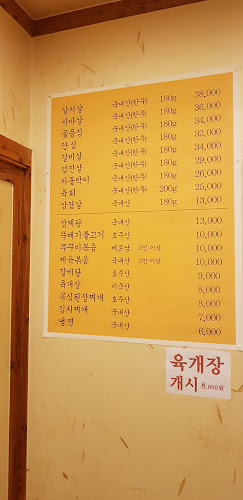 살치살 국내산(한우) 180g 38,000
치마살 국내산(한우) 180g 36,000
꽃등심 국내산(한우) 180g 34,000
안심 국내산(한우) 180g 32,000
갈비살 국내산(한우) 180g 34,000
업진살 국내산(한우) 180g 29,000
차돌박이 국내산(한우) 180g 26,000
육회 국내산(한우) 200g 25,000
삼겹살 국내산 180g 13,000
삼계탕 국내산 13,000
뚝배기불고기 호주산 10,000
쭈꾸미볶음 베트남 2인 이상 10,000
제육볶음 국내산 2인 이상 10,000
갈비탕 호주산 9,000
육개장 미국산 8,000
목심된장찌개 호주산 8,000
김치찌개 국내산 7,000
냉면 국내산 6,000
육개장
개시 8,000원